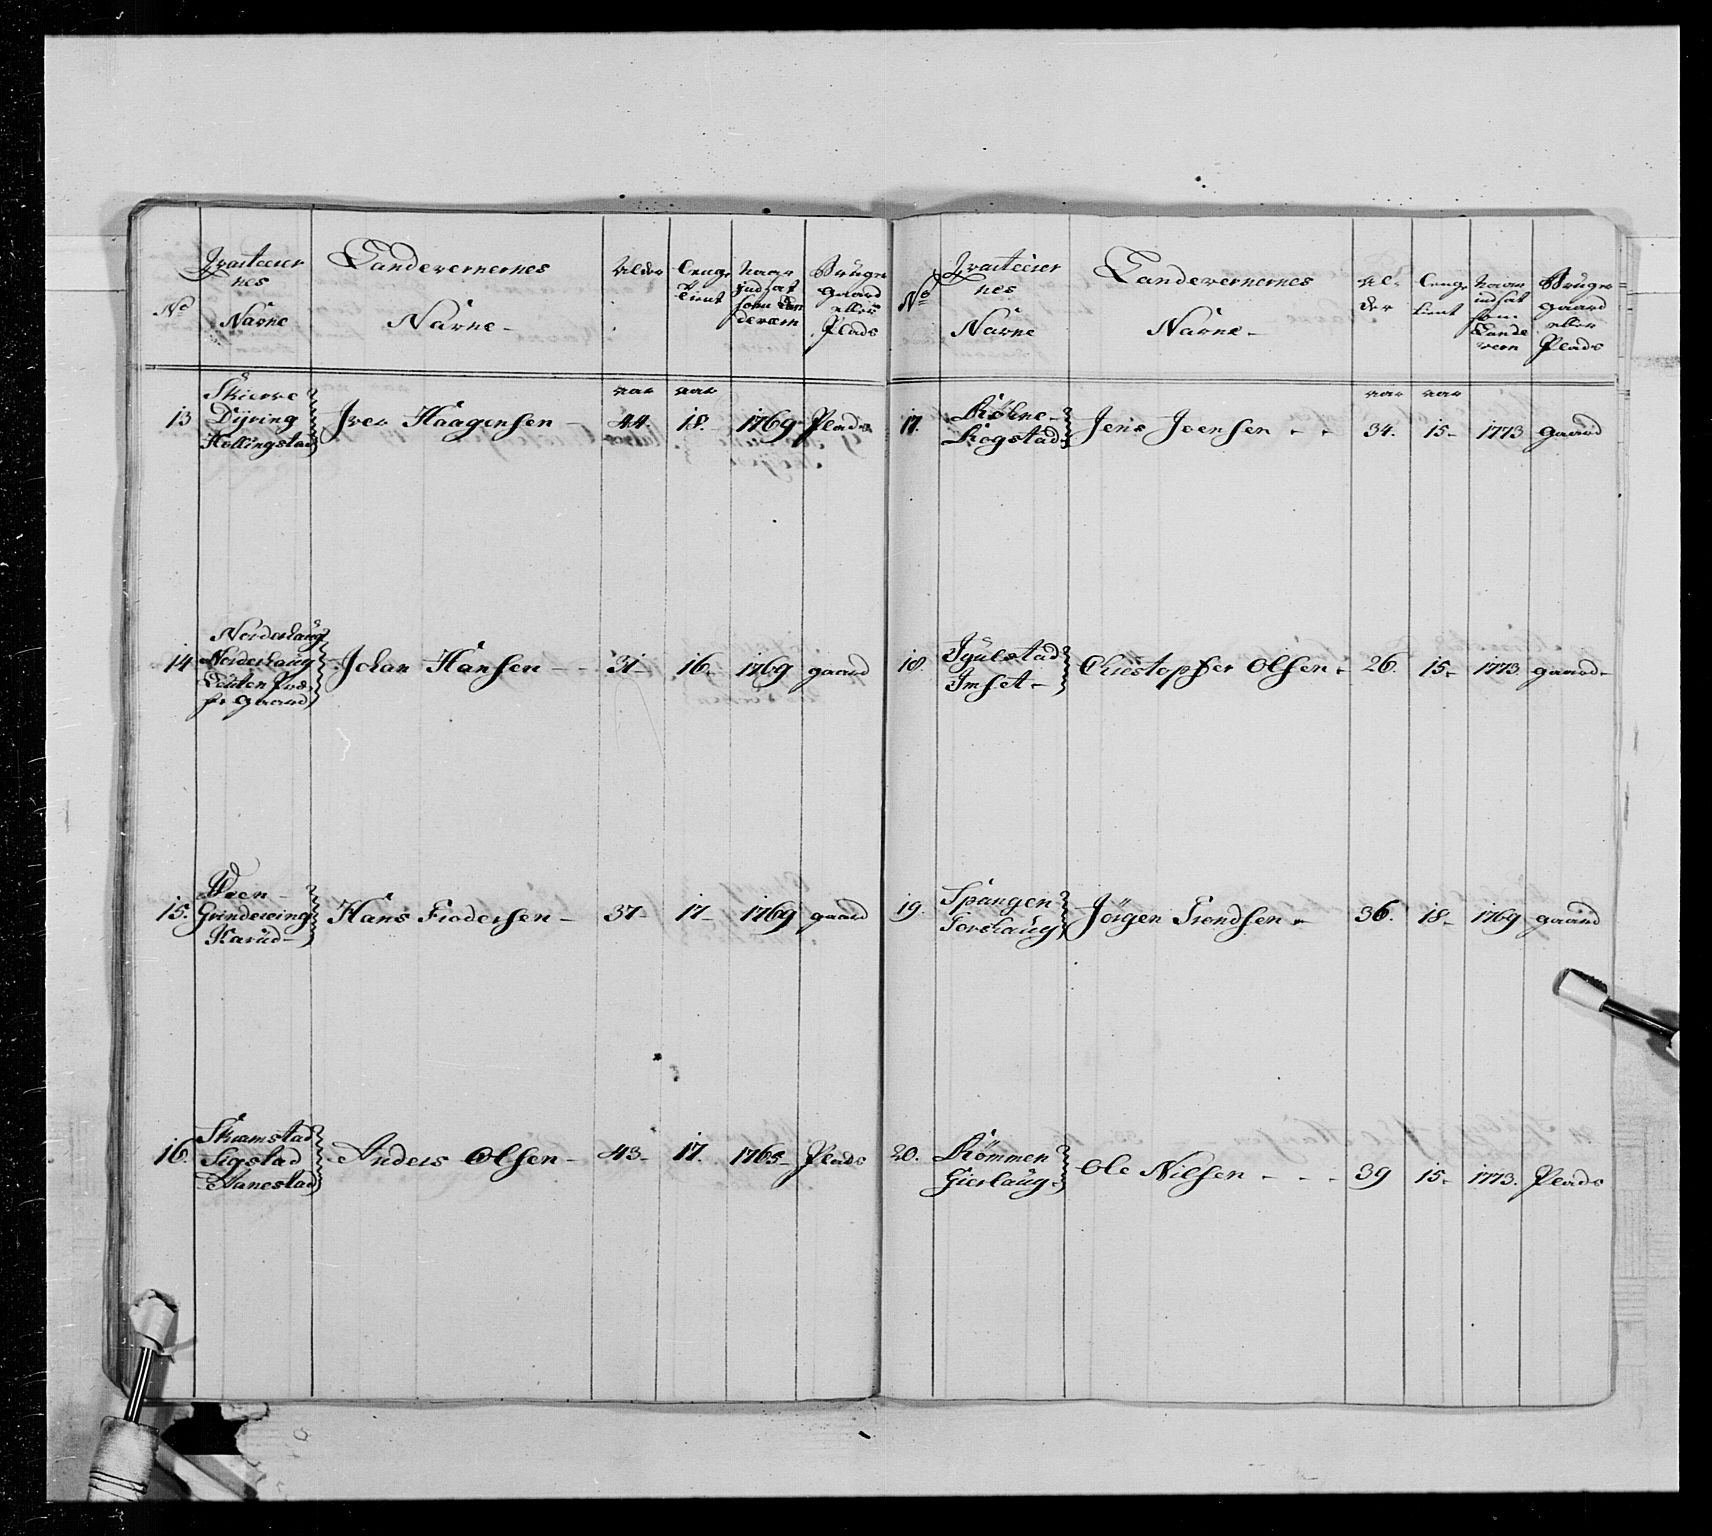 No
Qvarteerer
nes
Navne
Landevernernes
Navne-
Alder
Lenge
tient
Naar
indsat
som Lan
deværn
Bruger
gaard
eller
Plads
13
Skierve
Dyring
Hollingstad
Iver Haagensen -
aar
44.
aar
18.
1769
Plads
14
Norderhaug
Norderhaug
Løiten Præ-
ste gaard
Johan Hansen - -
31-
16.
1769
gaard
15.
Hoen-
Grindereng
Karud-
Hans Frodersen -
37-
17-
1769
gaard
16.
Skramstad
Sigstad
Hanestad
Anders Olsen -
43-
17.
1765-
Plads
No
Qvarteerer
nes
Navne
Landevernernes
Navne-
Al-
der
Lenge
tient
Naar
indsat
som
Lande
vern
Bruger
gaard
eller
Plads
17.
Røhne-
Rogstad
Jens Joensen - -
aar
34.
aar
15-
1773
gaard
18
Iyulstad
Imset-
Christopher Olsen -
26.
15-
1773
gaard-
19.
Spangen
Torshaug
Jørgen Trondsen -
36.
18-
1769
gaard
20.
Rømmen
Gierlaug-
Ole Nilsen - - -
39
15-
1773.
Plads